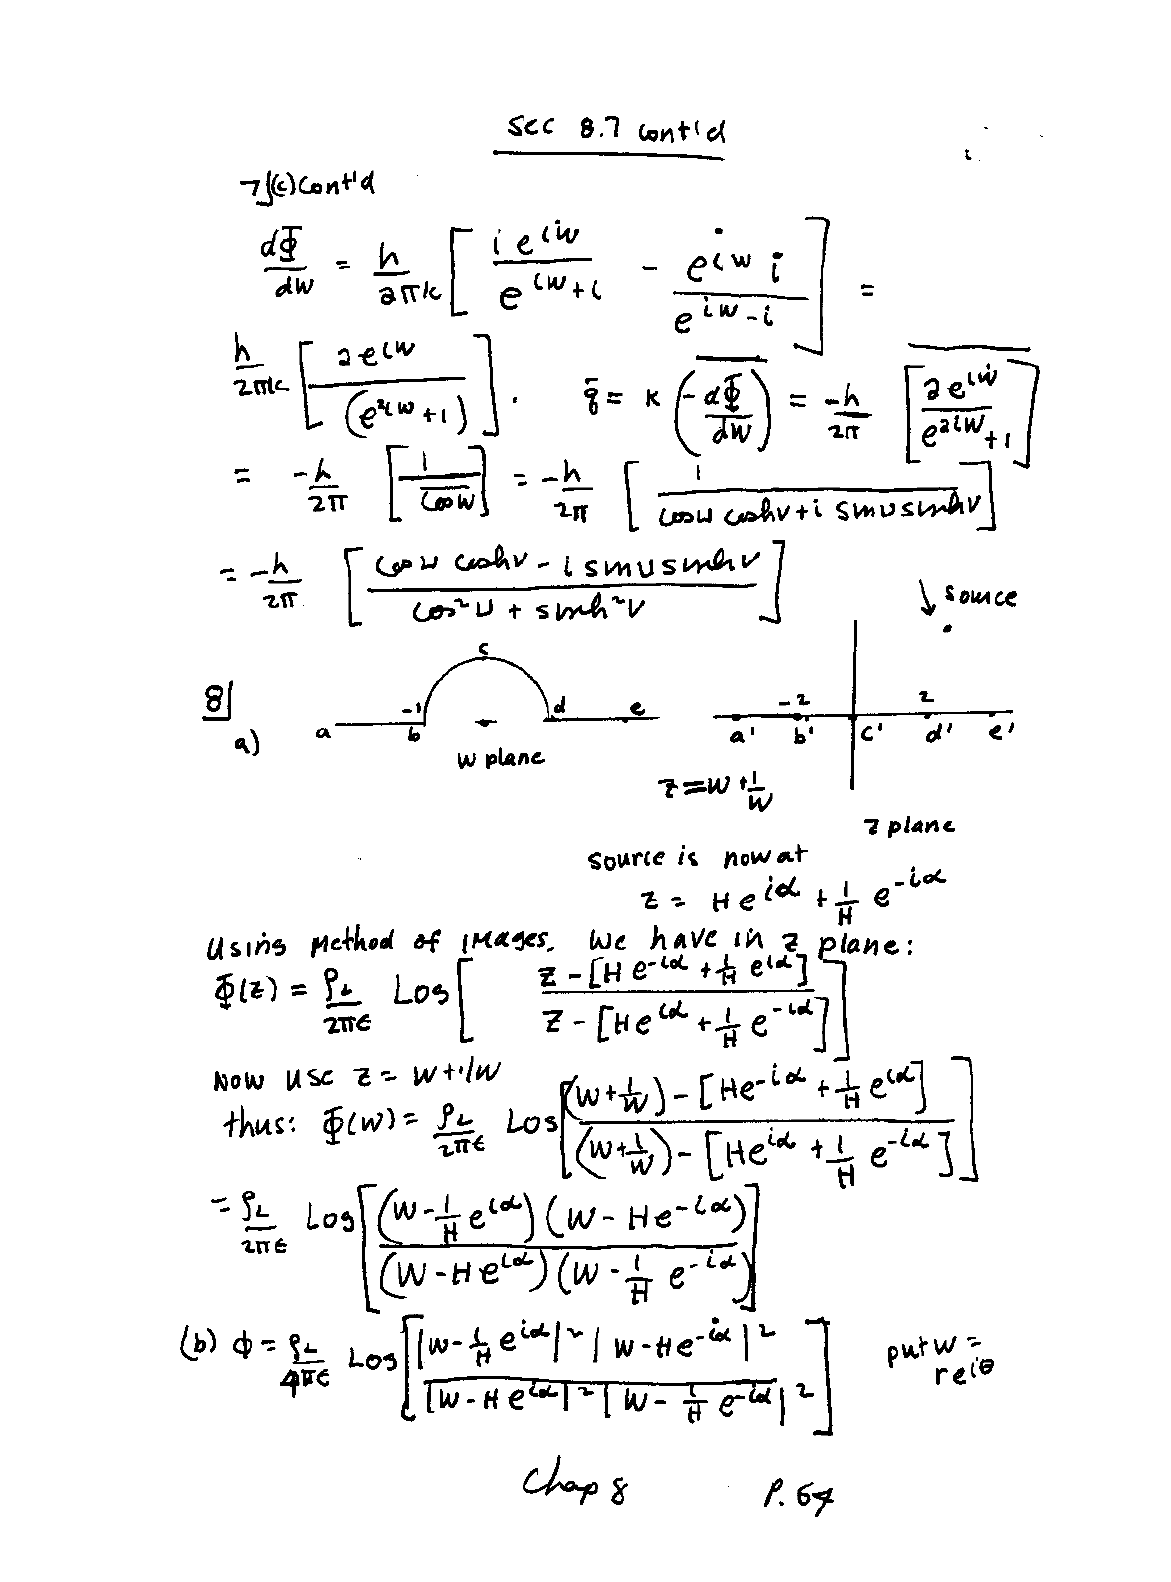 Sec 8.7 cont'd
7](c) cont'd
dΦ/dw = h/2πk [ i e^{iw} / e^{iw}+i - e^{iw} i / e^{iw}-i ] =
h/2πk [ 2e^{iw} / (e^{2iw}+1) ] . q̄ = k \overline{(-dΦ/dw)} = -h/2π \overline{[ 2e^{iw} / e^{2iw}+1 ]}
= -h/2π [ \overline{1/cos w} ] = -h/2π [ \overline{1 / cos u cosh v + i sin u sinh v} ]
= -h/2π [ cos u cosh v - i sin u sinh v / cos² u + sinh² v ]
↓ source
8]
a)
a -1 b c d e
w plane
-2 2
a' b' c' d' e'
z = w + 1/w
z plane
source is now at
z = H e^{iα} + 1/H e^{-iα}
Using Method of images, we have in z plane:
Φ(z) = ρ_L/2πε Log [ z - [H e^{-iα} + 1/H e^{iα}] / z - [H e^{iα} + 1/H e^{-iα}] ]
Now use z = w + 1/w
thus: Φ(w) = ρ_L/2πε Log [ (w + 1/w) - [H e^{-iα} + 1/H e^{iα}] / (w + 1/w) - [H e^{iα} + 1/H e^{-iα}] ]
= ρ_L/2πε Log [ (w - 1/H e^{iα}) (w - H e^{-iα}) / (w - H e^{iα}) (w - 1/H e^{-iα}) ]
(b) φ = ρ_L/4πε Log [ |w - 1/H e^{iα}|² |w - H e^{-iα}|² / |w - H e^{iα}|² |w - 1/H e^{-iα}|² ] put w =
re^{iθ}
Chap 8 p. 64